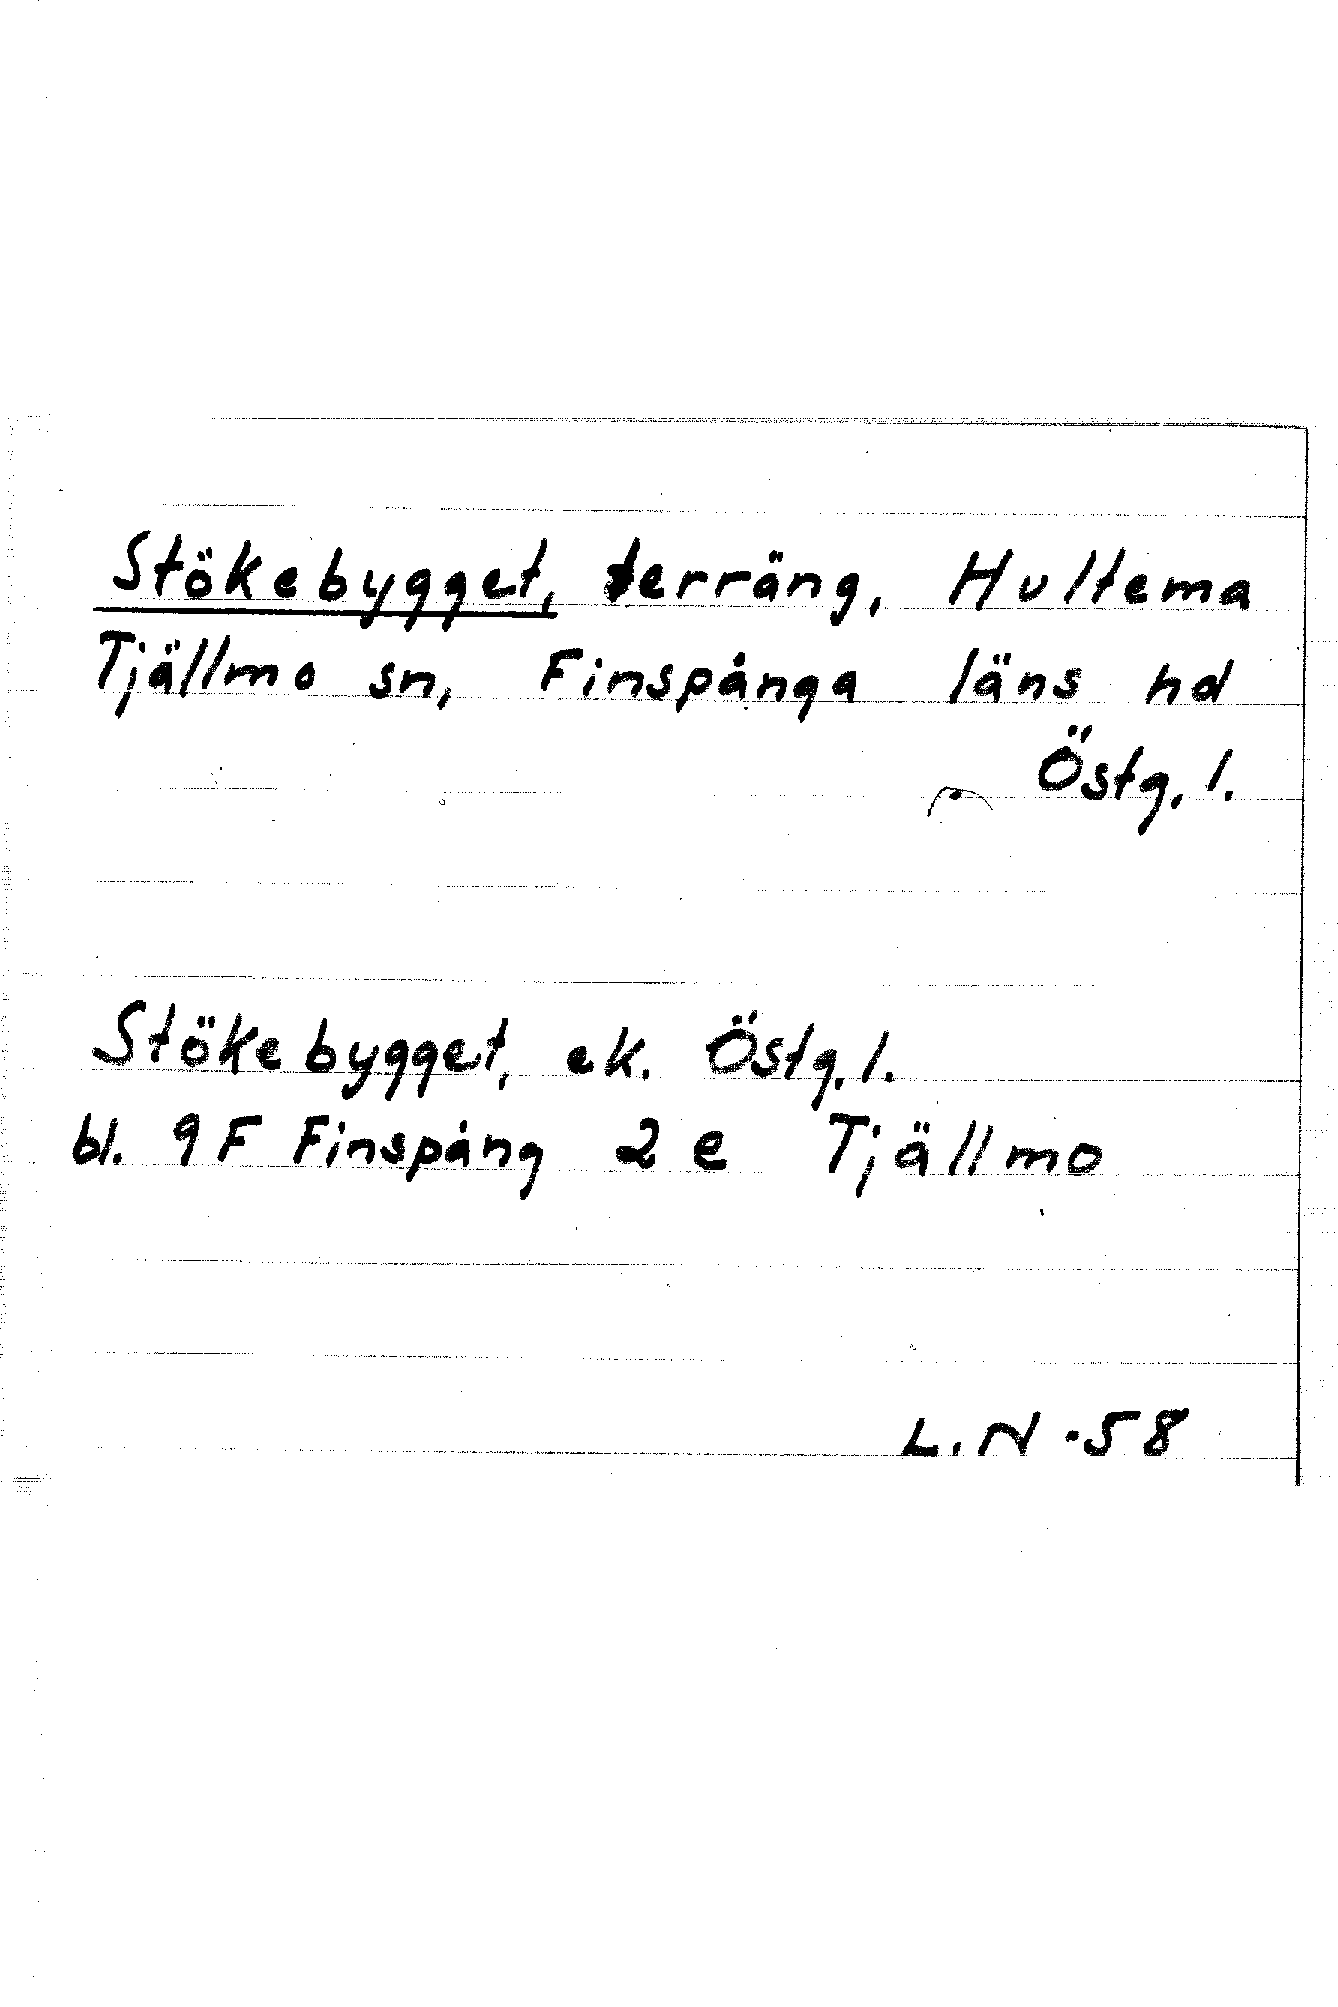 Stökebygget, terräng, Hultema
Tjällmo sn, Finspånga läns hd
Östg. l.
Stökebygget, ek. Östg. l.
bl. 9F Finspång 2 e Tjällmo
L. N -58